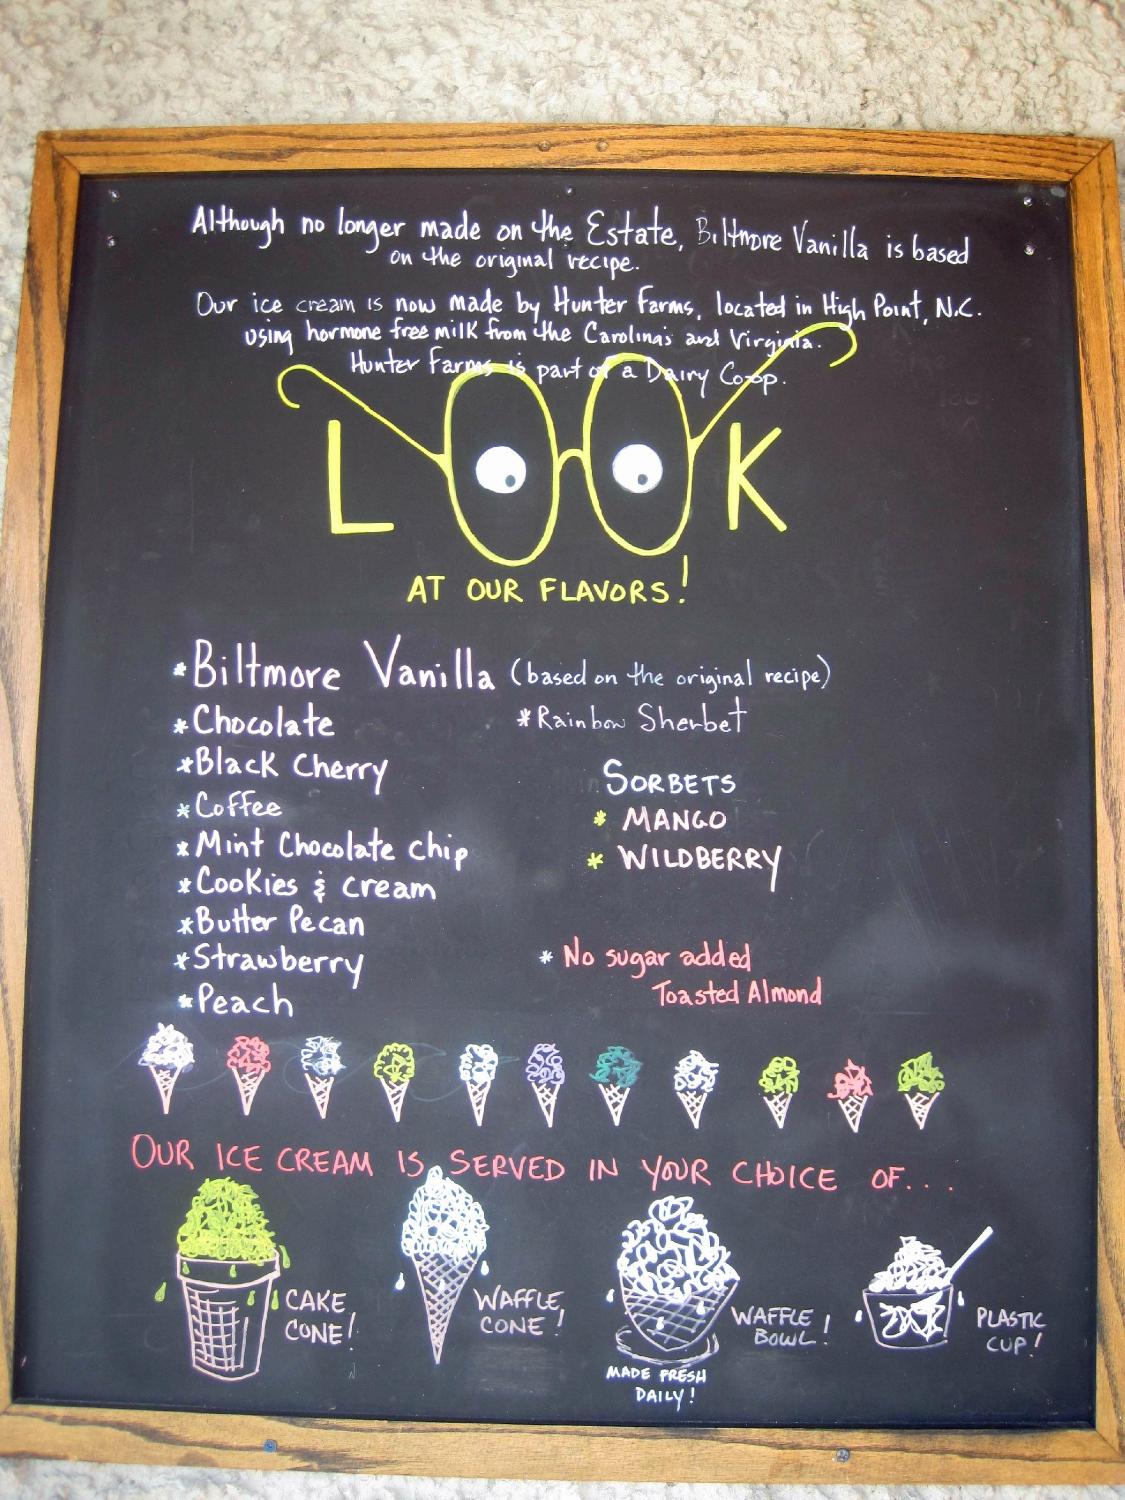 Although no longer made on the Estate, Biltmore Vanilla is based
on the original recipe.
Our ice cream is now made by Hunter Farms, located in High Point, N.C.
using hormone free milk from the Carolina's and Virginia.
Hunter Farms is part of a Dairy Co-op.
LOOK
AT OUR FLAVORS!
*Biltmore Vanilla (based on the original recipe)
*Chocolate
*Black Cherry
*Coffee
*Mint Chocolate Chip
*Cookies & Cream
*Butter Pecan
*Strawberry
*Peach
*Rainbow Sherbet
SORBETS
* MANGO
* WILDBERRY
* No sugar added
Toasted Almond
OUR ICE CREAM IS SERVED IN YOUR CHOICE OF...
CAKE
CONE!
WAFFLE
CONE!
WAFFLE
BOWL!
MADE FRESH
DAILY!
PLASTIC
CUP!